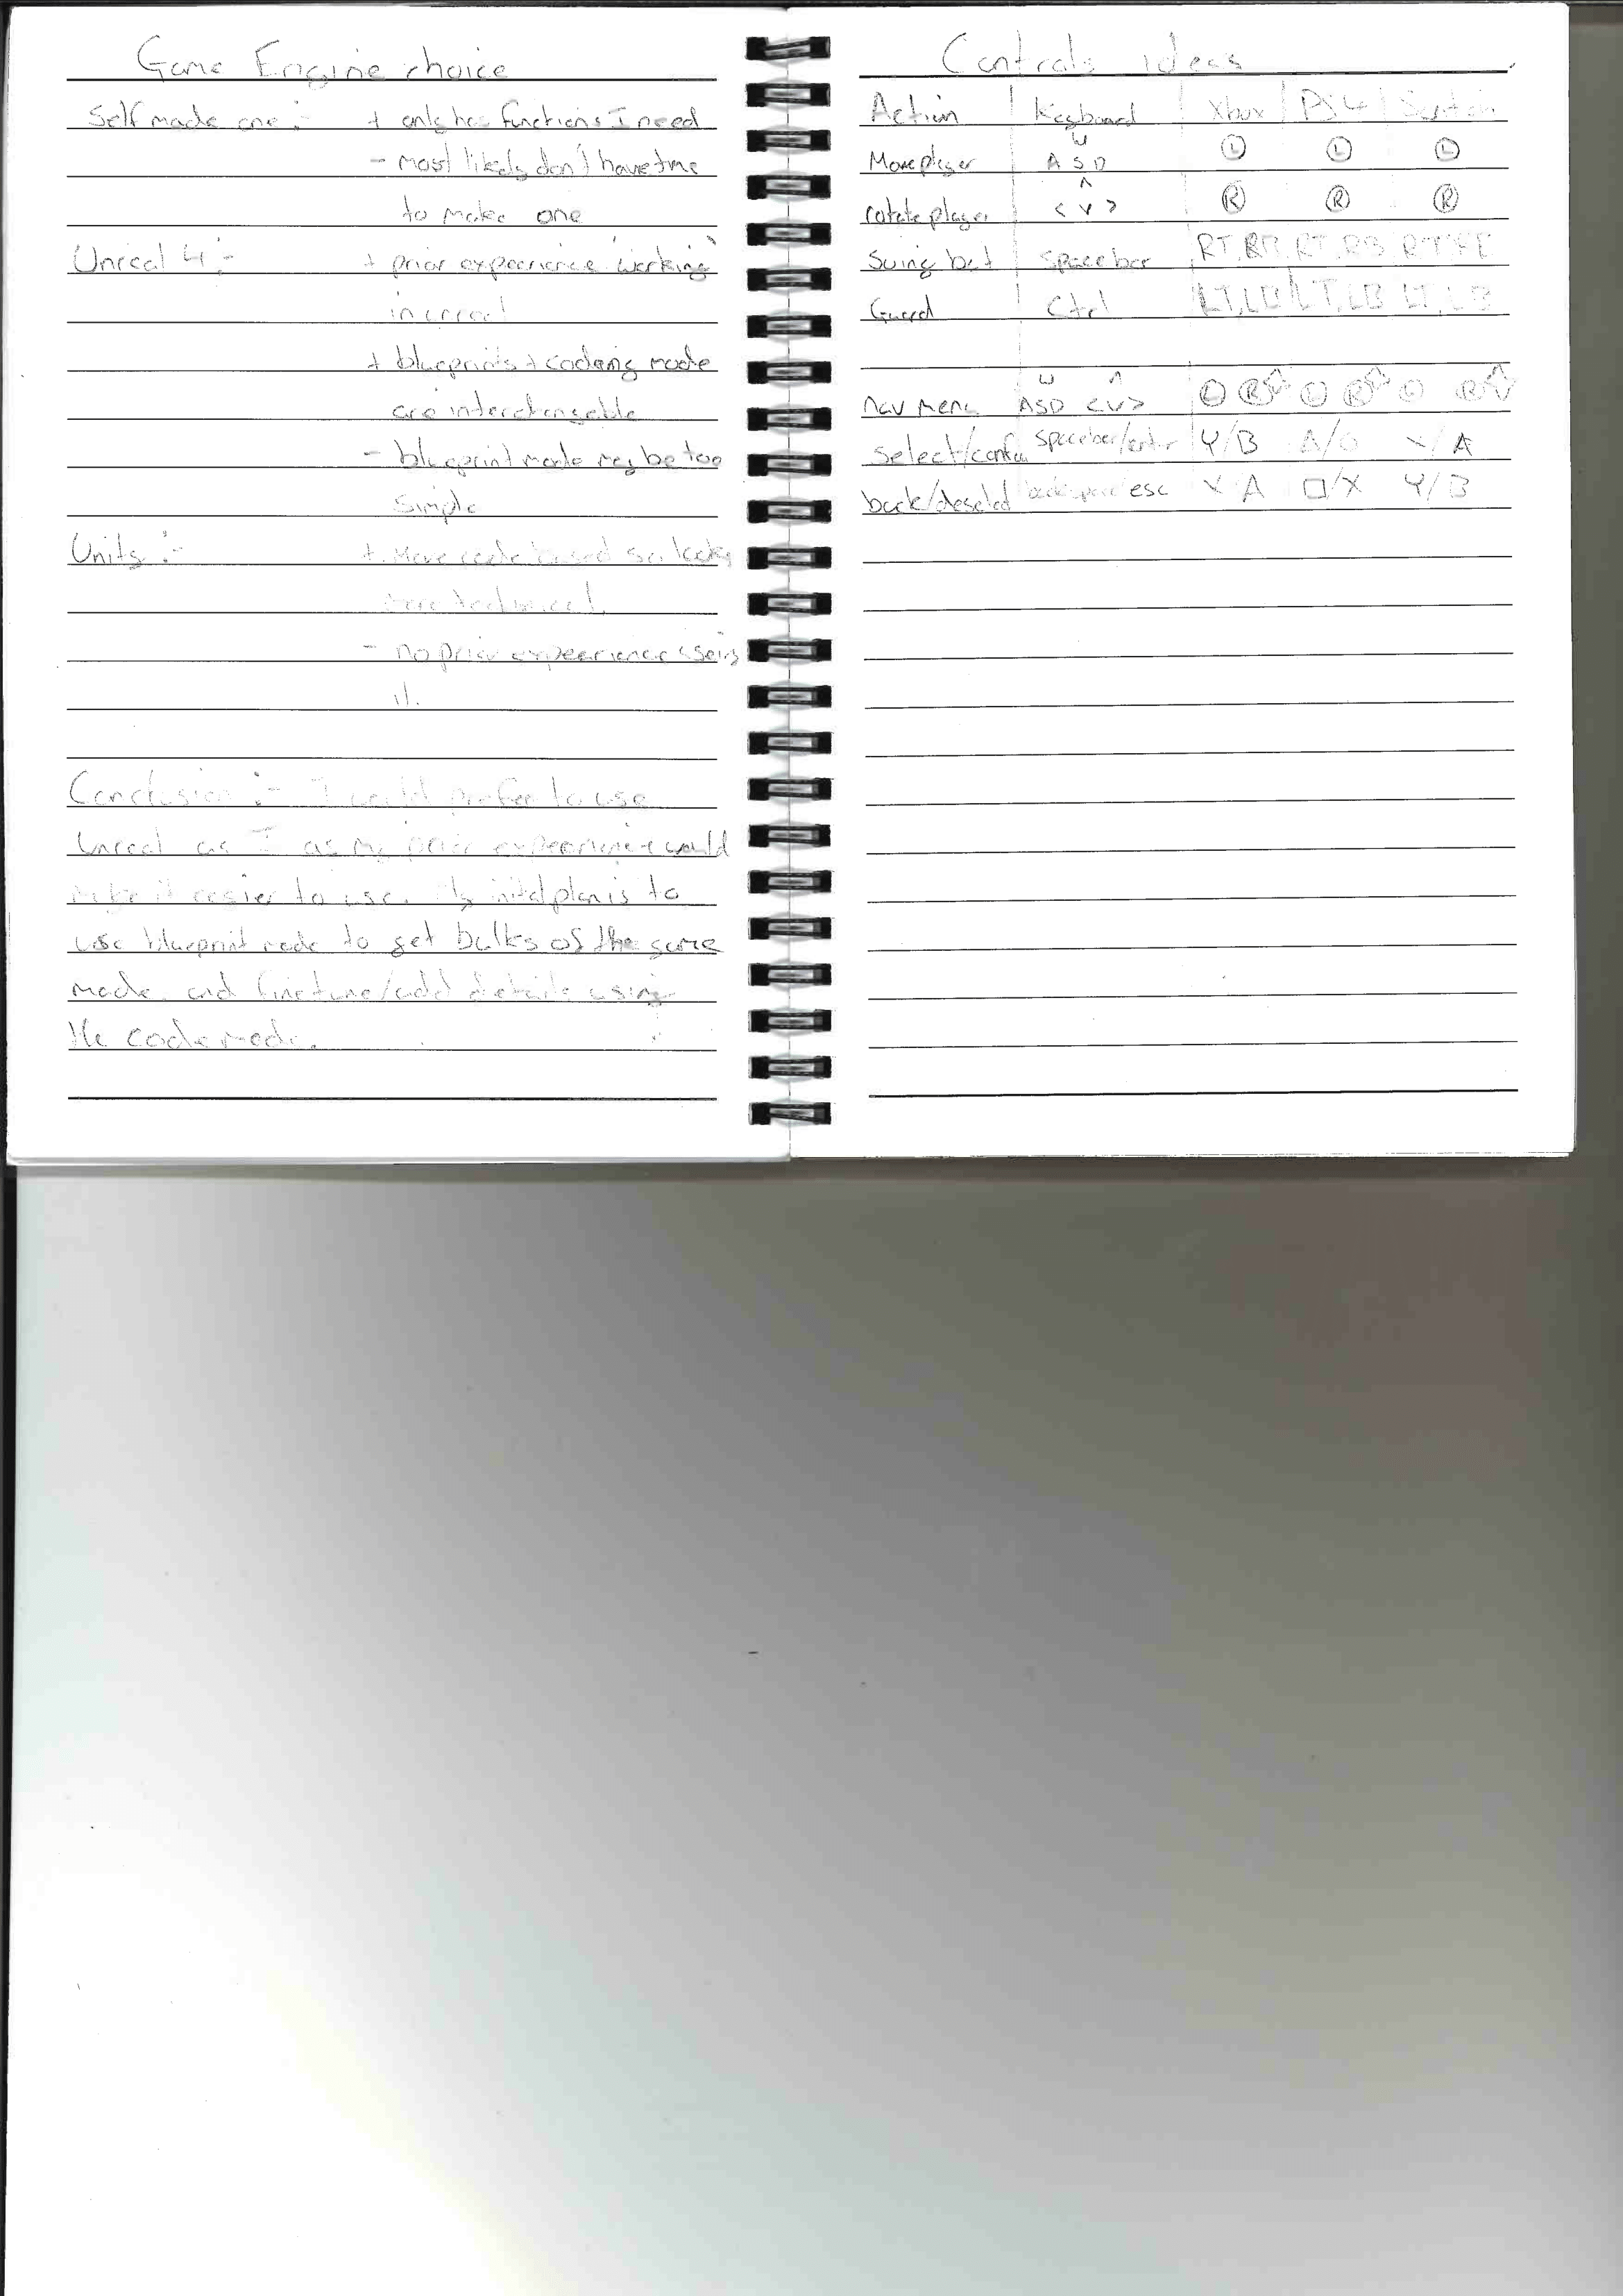 Game Engine choice
Self made one :- + only has functions I need
- most likely don't have time
to make one
Unreal 4 :- + prior expeerience working
in unreal
+ blueprints + codeing mode
are interchangable
- blueprint mode may be too
simple
Unity :- + More code based so looks
more technical.
- no prior expeerience useing
it.
Conclusion :- I would prefer to use
Unreal as I as my prior expeerience would
make it easier to use. My inital plan is to
use blueprint mode to get bulks of the game
made. and finetune/add details using
the code mode.
Controls ideas
Action Keyboard Xbox PS4 Switch
W
Move player A S D L L L
^
rotate player < v > R R R
Swing bat spacebar RT, RB RT, RB RT
Guard Ctrl LT, LB LT, LB LT, LB
W ^
nav menu ASD <v> L R L R L R
select/confir spacebar/enter Y/B X/A
back/deselect backspace/esc X A □/X Y/B